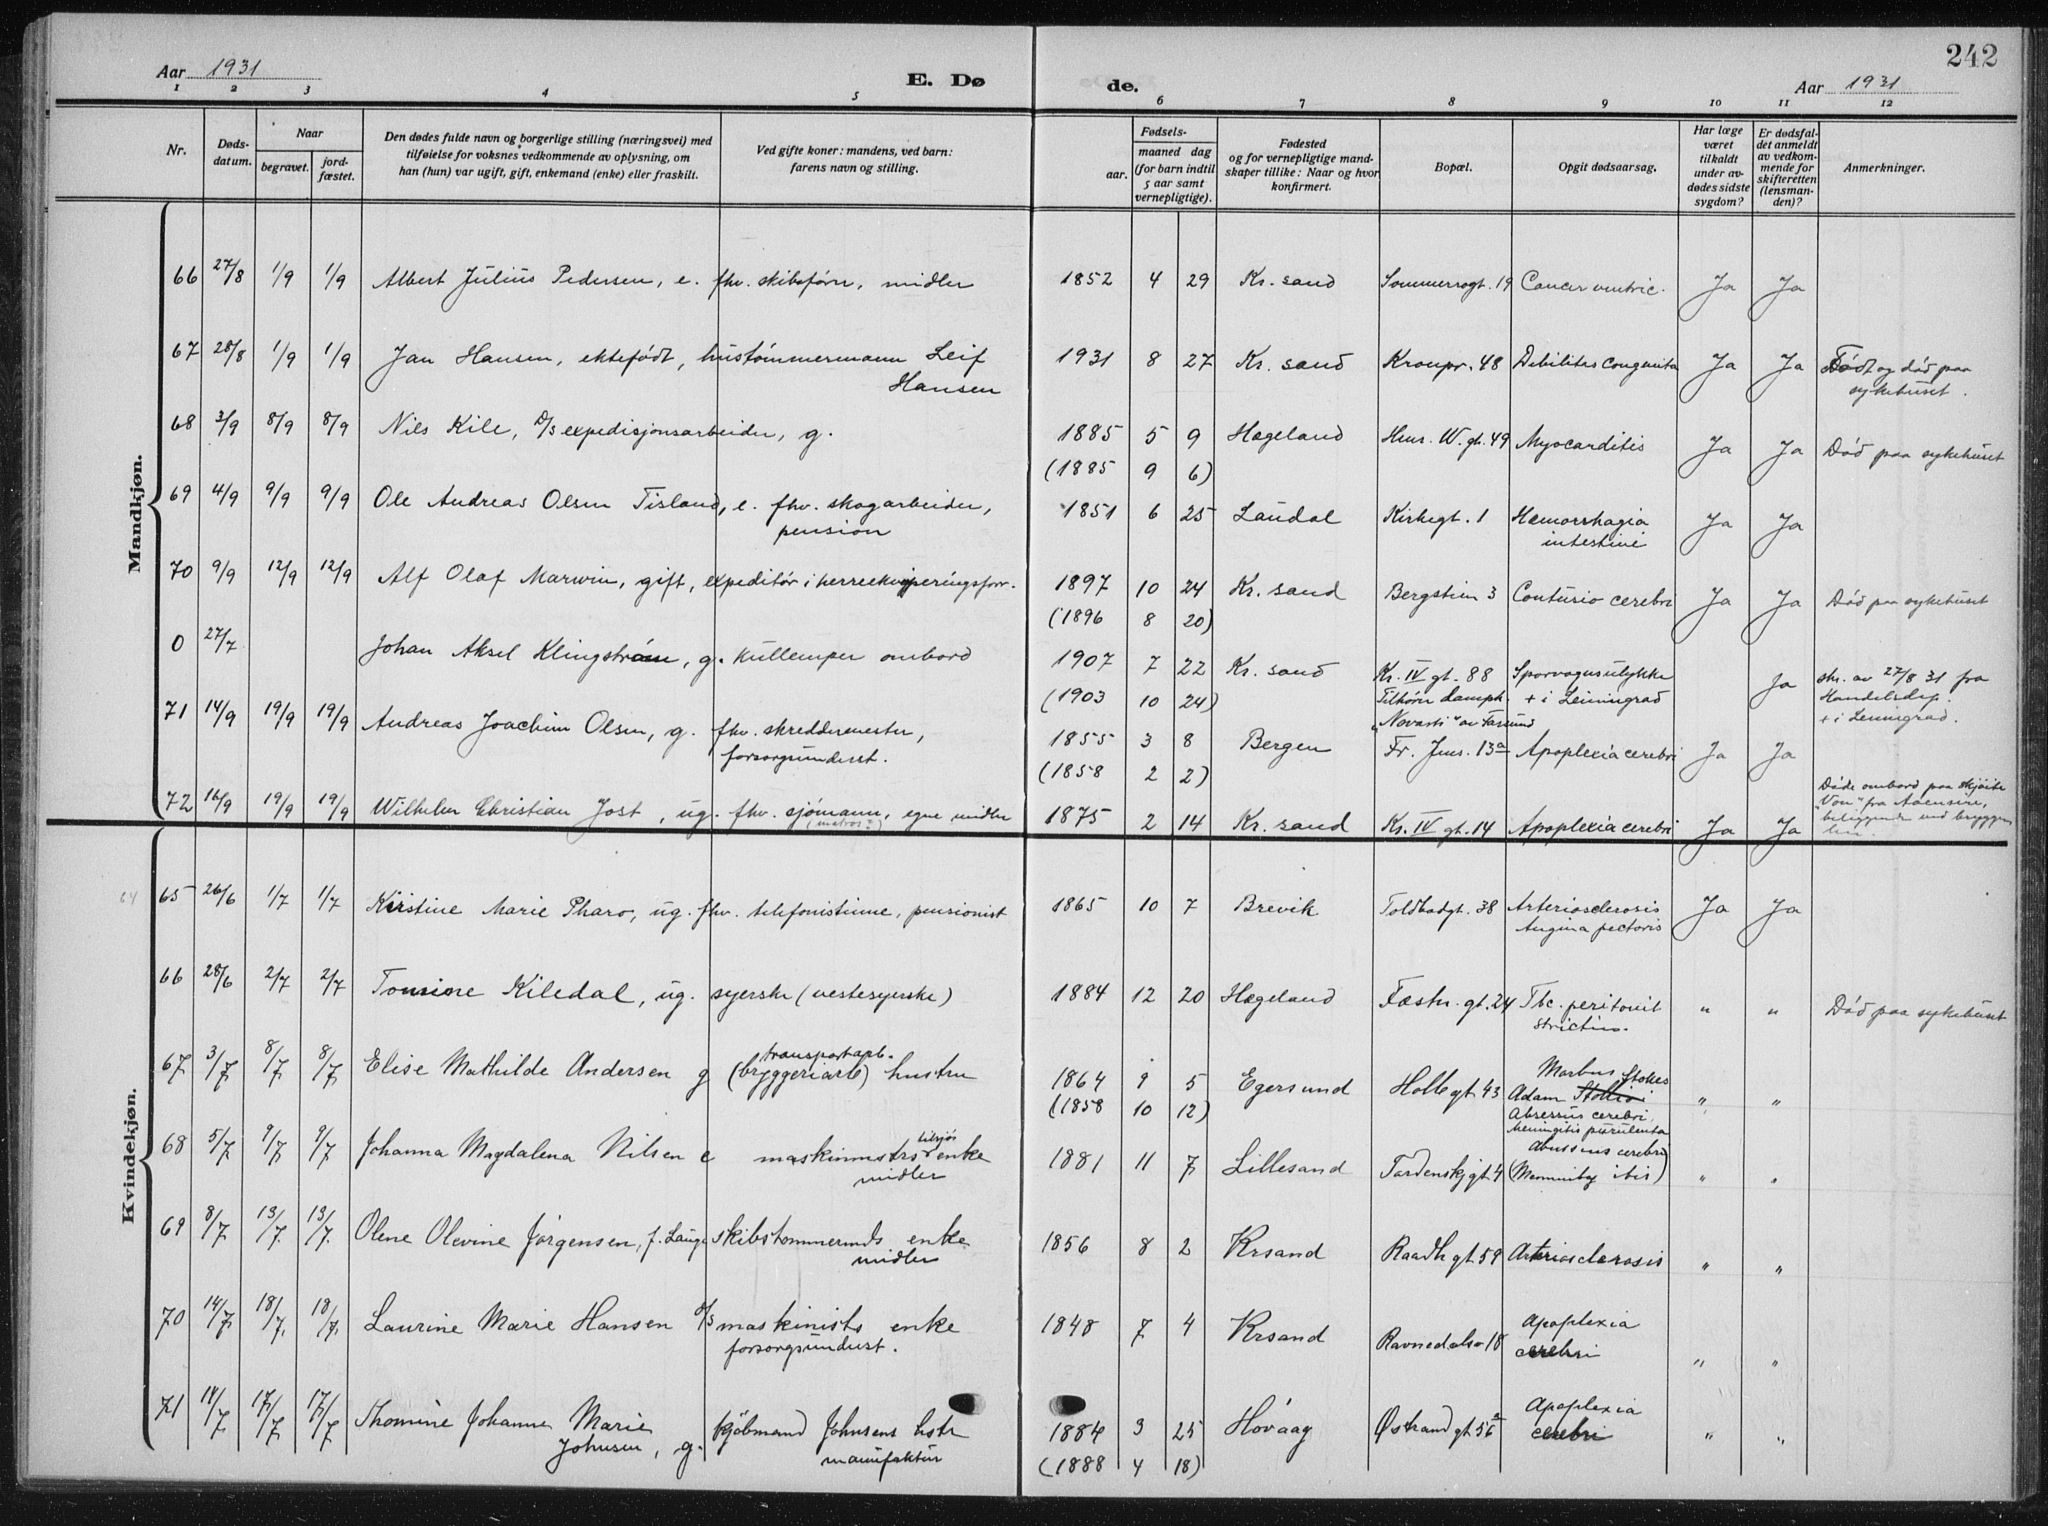 242
Aar 1931 E. Dø de. Aar 1931
1 2 3 4 5 6 7 8 9 10 11 12
Nr. Dødsdatum. Naar begravet. jordfæstet. Den dødes fulde navn og borgerlige stilling (næringsvei) med tilføielse for voksnes vedkommende av oplysning, om han (hun) var ugift, gift, enkemand (enke) eller fraskilt. Ved gifte koner: mandens, ved barn: farens navn og stilling. Fødsels- aar. maaned dag (for barn indtil 5 aar samt vernepligtige). Fødested og for vernepligtige mandskaper tillike: Naar og hvor konfirmert. Bopæl. Opgit dødsaarsag. Har læge været tilkaldt under avdødes sidste sygdom? Er dødsfaldet anmeldt av vedkommende for skifteretten (lensmanden)? Anmerkninger.
Mandkjøn.
66 27/8 1/9 1/9 Albert Julius Pedersen, e. fhv. skibsfører, midler 1852 4 29 Kr. sand Sommerrogt. 19 Cancer ventric. Ja Ja
67 28/8 1/9 1/9 Jan Hansen, ektefødt, hustømmermann Leif 1931 8 27 Kr. sand Kronpr. 48 Debilitas congenita Ja Ja Født og død paa
Hansen sykehuset.
68 3/9 8/9 8/9 Nils Kile, D/S expedisjonsarbeider, g. 1885 5 9 Hægeland Henr. W. gt. 49 Myocarditis Ja Ja Død paa sykehuset
(1885 9 6)
69 4/9 9/9 9/9 Ole Andreas Olsen Tisland, e. fhv. skogarbeider, 1851 6 25 Laudal Kirkegt. 1 Hæmorrhagia Ja Ja
pension intestini
70 9/9 12/9 12/9 Alf Olaf Marwin, gift, expeditør i herreekviperingsforr. 1897 10 24 Kr. sand Bergstien 3 Contusio cerebri Ja Ja Død paa sykehuset
(1896 8 20)
0 27/7 Johan Aksel Klingstrøm, g. kullemper ombord 1907 7 22 Kr. sand Kr. IV gt. 88 Sporvognsulykke Ja skr. av 27/8 31 fra
(1903 10 24) Tilhører dampk. + i Leningrad Handelsdep.
"Novasti" av Farsund + i Leningrad.
71 14/9 19/9 19/9 Andreas Joachim Olsen, g. fhv. skreddermester, 1855 3 8 Bergen Fr. Jens. 13a Apoplexia cerebri Ja Ja
forsorgsunderst. (1858 2 2)
72 16/9 19/9 19/9 Wilhelm Christian Jost, ug. fhv. sjømann, egne midler 1875 2 14 Kr. sand Kr. IV gt. 14 Apoplexia cerebri Ja Ja Døde ombord paa skjøite
(matros?) "Von" fra
beliggende ved bryggen
Kvindekjøn.
64
65 26/6 1/7 1/7 Kirstine Marie Pharo, ug. fhv. telefonistinne, pensionist 1865 10 7 Brevik Toldbodgt. 38 Arteriosclerosis Ja Ja
Angina pectoris
66 28/6 2/7 2/7 Tomine Kiledal, ug. syerske (vestesyerske) 1884 12 20 Hægeland Fæstn. gt. 24 Tbc. peritonit " " Død paa sykehuset
67 3/7 8/7 8/7 Elise Mathilde Andersen g transportarb. (bryggeriarb) hustru 1864 9 5 Egersund Holbgt 43 Morbus Adam Stokes " "
(1858 10 12) Abscessus cerebri.
Meningitis purulenta
68 5/7 9/7 9/7 Johanna Magdalena Nilsen e maskinmstrs tilsjøs enke 1881 11 7 Lillesand Tordenskjgt 4 Abscessus cerebri " "
midler
69 8/7 13/7 13/7 Olene Olevine Jørgensen, f. Lange skibstømmermds enke 1856 8 2 Krsand Raadhgt 59 Arteriosclerosis " "
midler
70 14/7 18/7 18/7 Laurine Marie Hansen D/S maskinists enke 1848 7 4 Krsand Ravnedalsv 18 Apoplexia " "
forsorgsunderst. cerebri
71 14/7 17/7 17/7 Thomine Johanne Marie kjøbmand Johnsens hstr 1884 3 25 Høvaag Østrandgt 56a Apoplexia " "
Johnsen, g. manufaktur (1888 4 18) cerebri